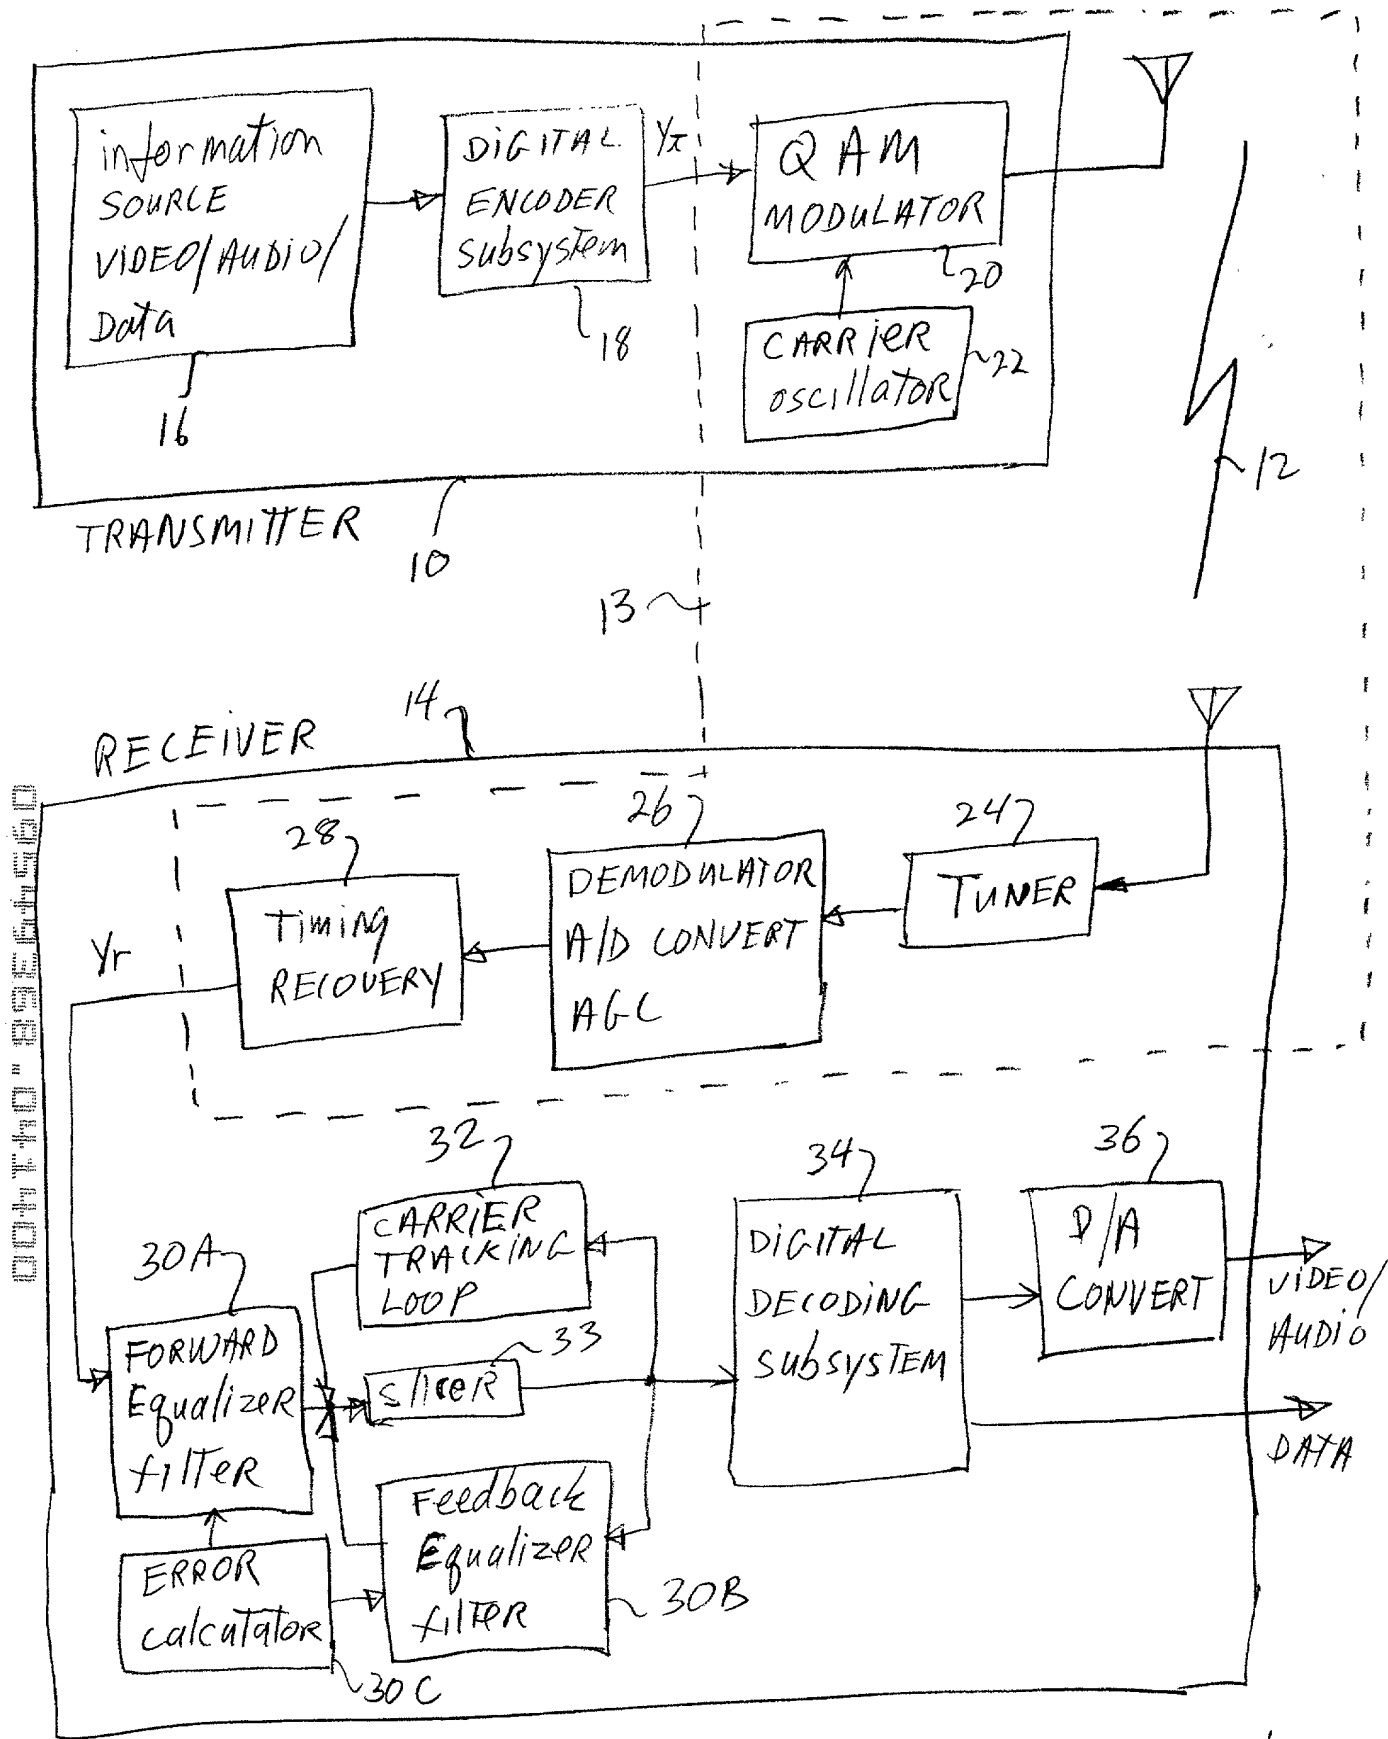 information
SOURCE
VIDEO/AUDIO/
Data
16
DIGITAL
ENCODER
subsystem
18
QAM
MODULATOR
20
CARRIER
oscillator
22
TRANSMITTER
10
12
13
RECEIVER
14
28
26
24
Timing
RECOVERY
DEMODULATOR
A/D CONVERT
AGC
TUNER
Yr
32
34
36
30A
CARRIER
TRACKING
LOOP
DIGITAL
DECODING
SUBSYSTEM
D/A
CONVERT
VIDEO/
AUDIO
DATA
FORWARD
Equalizer
filTER
33
slicer
Feedback
Equalizer
filTER
30B
ERROR
calcutator
30C